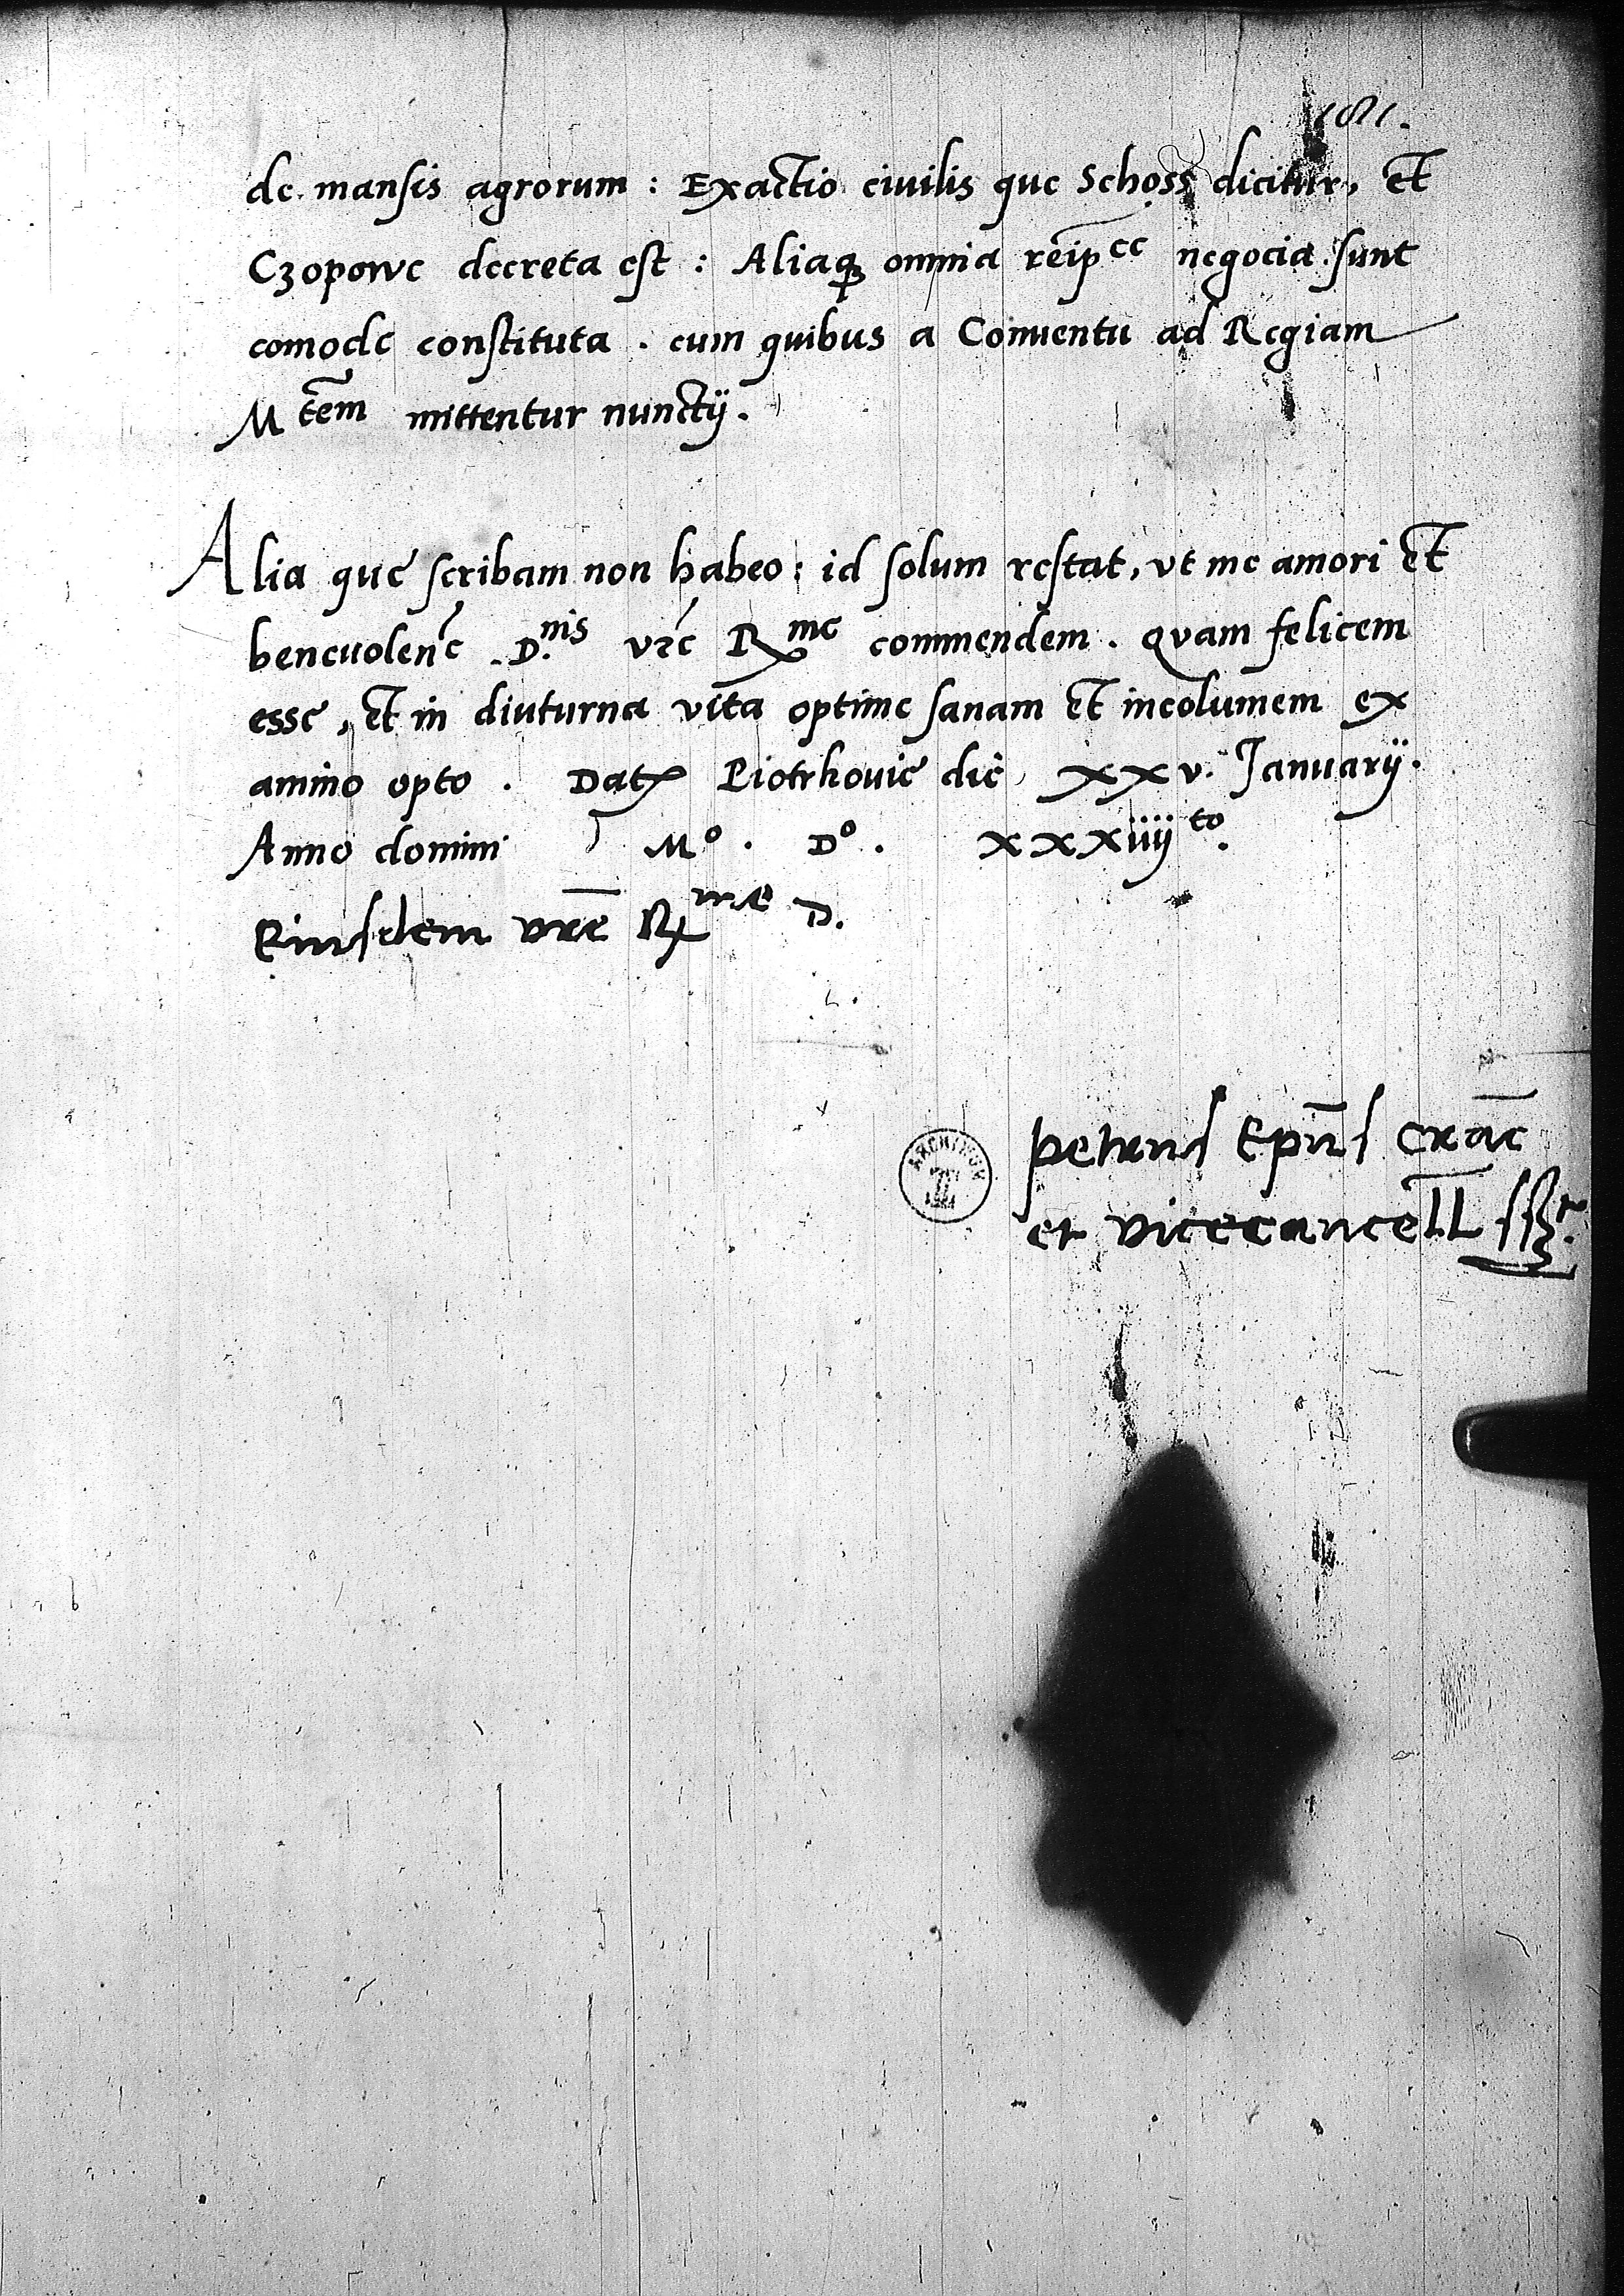 de mansis agrorum : Exactio ciuilis que Schoss dicitur, et
Czopowe decreta est : Aliaq; omnia reip̄ce negocia sunt
comode constituta . cum quibus a Conuentu ad Regiam
Mtem̄ mittentur nunctij .
Alia que scribam non habeo : id solum restat, vt me amori et
beneuolenc̄ D.nis vr̄e Rme commendem . Quam felicem
esse, et in diuturna vita optime sanam et incolumem ex
animo opto . Dat Piotrkouie die xxv. Januarij .
Anno domini Mo . Do . xxxiiijto .
Eiusdem vr̄e Rme D.
petrus Ep̄us Crac̄
et vicecancell̄ sst
ARCHIWUM